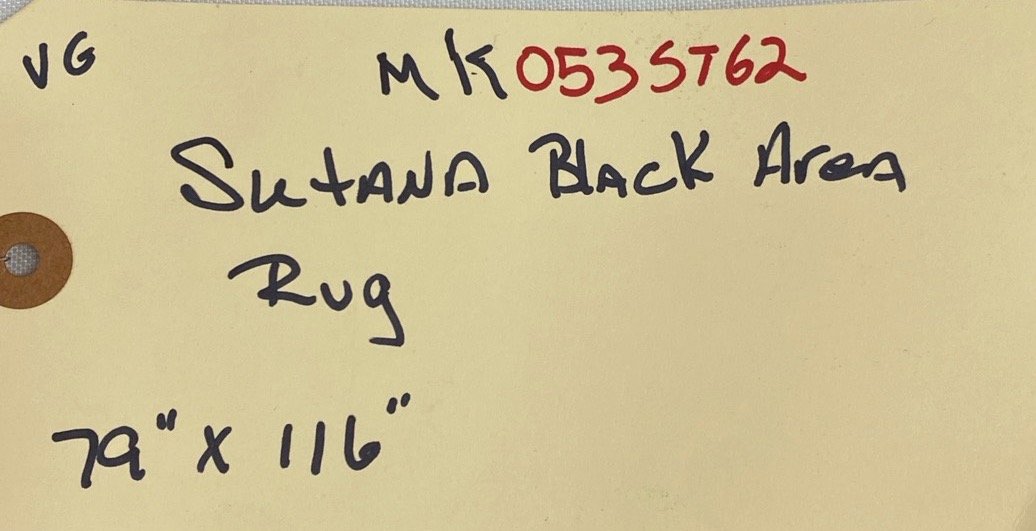 VG MK053ST62
SutANA BlAcK AreA
Rug
79" X 116"